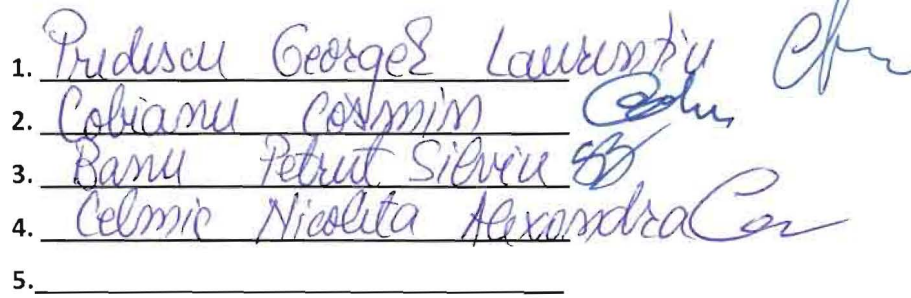 1. Predescu Georgel Laurentiu
2. Cobianu Cosmin
3. Banu Petrut Silviu
4. Celmic Nicoleta Alexandra
5.